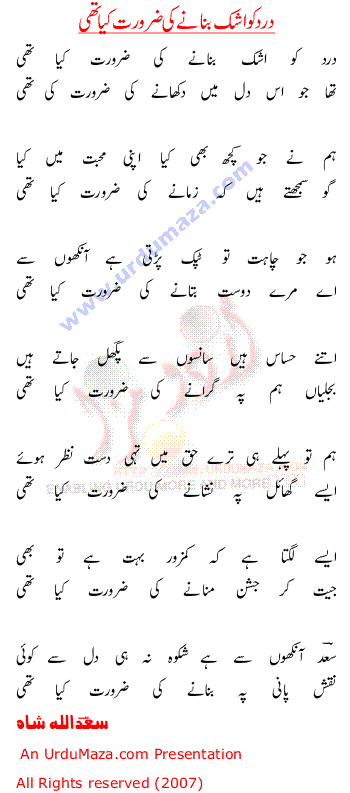 درد کو اشک بنانے کی ضرورت کیا تھی
درد کو اشک بنانے کی ضرورت کیا تھی
تھا جو اس دل میں دکھانے کی ضرورت کی تھی
ہم نے جو کچھ بھی کیا اپنی محبت میں کیا
گو سمجھتے ہیں کہ زمانے کی ضرورت کیا تھی
ہو جو چاہت تو ٹپک پڑتی ہے آنکھوں سے
اے مرے دوست بتانے کی ضرورت کیا تھی
اتنے حساس ہیں سانسوں سے پگھل جاتے ہیں
بجلیاں ہم پہ گرانے کی ضرورت کیا تھی
ہم تو پہلے ہی ترے حق میں تہی دست نظر ہوئے
ایسے گھائل پہ نشانے کی ضرورت کیا تھی
ایسے لگتا ہے کہ کمزور بہت ہے تو بھی
جیت کر جشن منانے کی ضرورت کیا تھی
سعدؔ آنکھوں سے ہے شکوہ نہ ہی دل سے کوئی
نقش پانی پہ بنانے کی ضرورت کیا تھی
سعداللہ شاہ
An UrduMaza.com Presentation
All Rights reserved (2007)
www.urdumaza.com
HTTP://WWW.URDUMAZA.COM
ENABLING URDU MORE AND MORE